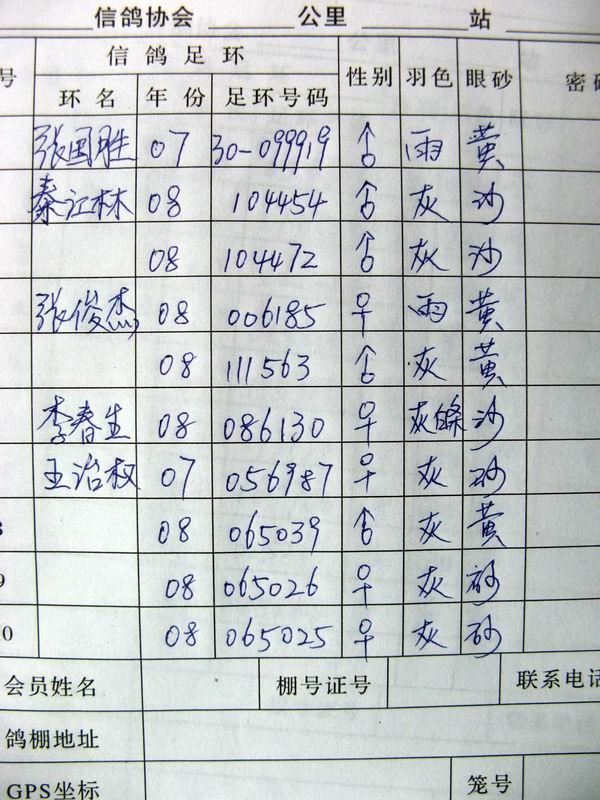 信鸽协会 公里 站
号 信鸽足环 性别 羽色 眼砂 密
环名 年份 足环号码
张国胜 07 30-099919 ♂ 雨 黄
秦江林 08 104454 ♂ 灰 沙
08 104472 ♂ 灰 沙
张俊杰 08 006185 ♀ 雨 黄
08 111563 ♂ 灰 黄
李春生 08 086130 ♀ 灰條 沙
王治权 07 056987 ♀ 灰 砂
8 08 065039 ♂ 灰 黄
9 08 065026 ♀ 灰 砂
0 08 065025 ♀ 灰 砂
会员姓名 棚号证号 联系电话
鸽棚地址
GPS坐标 笼号